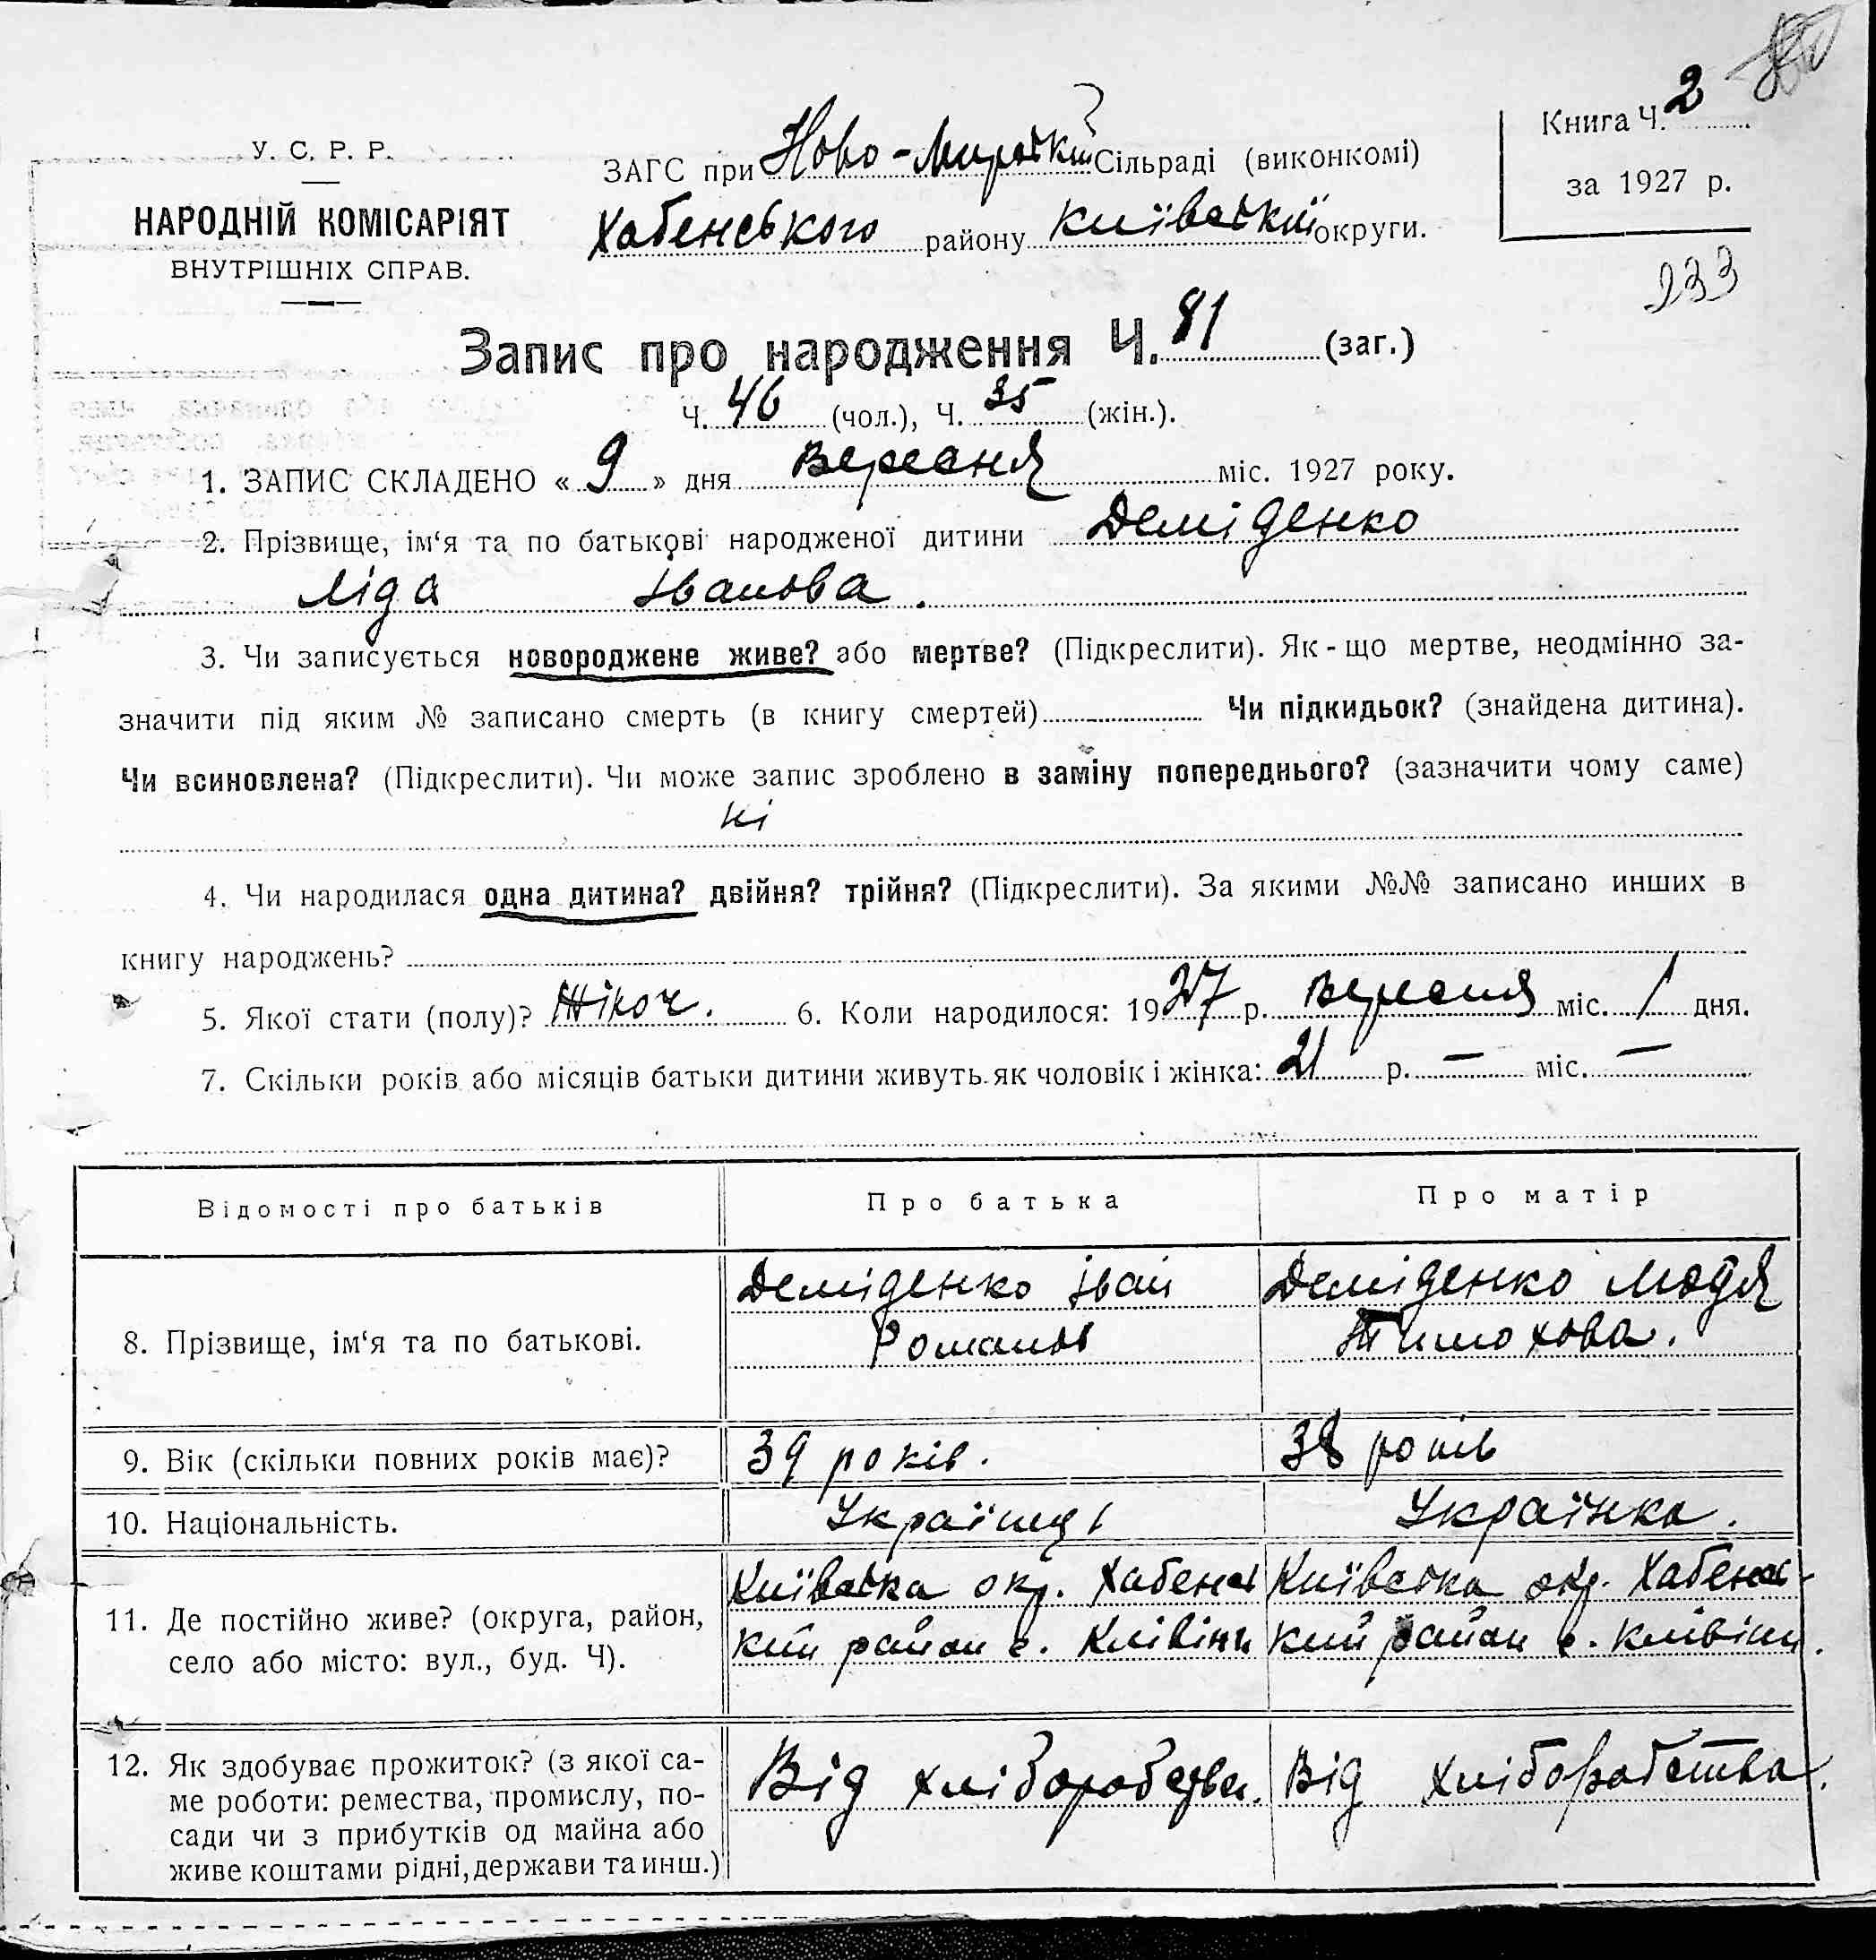 У. С. Р. Р.
НАРОДНІЙ КОМІСАРІЯТ
ВНУТРІШНІХ СПРАВ.
ЗАГС при Ново-Мирській Сільраді (виконкомі)
Хабенського району Київської округи.
Книга Ч. 2
за 1927 р.
133
Запис про народження Ч. 81 (заг.)
Ч. 46 (чол.), Ч. 35 (жін.).
1. ЗАПИС СКЛАДЕНО « 9 » дня Вересня міс. 1927 року.
2. Прізвище, ім‘я та по батькові народженої дитини Деміденко
Ліда Іванова.
3. Чи записується новороджене живе? або мертве? (Підкреслити). Як-що мертве, неодмінно за-
значити під яким № записано смерть (в книгу смертей) Чи підкидьок? (знайдена дитина).
Чи всиновлена? (Підкреслити). Чи може запис зроблено в заміну попереднього? (зазначити чому саме)
ні
4. Чи народилася одна дитина? двійня? трійня? (Підкреслити). За якими №№ записано инших в
книгу народжень?
5. Якої стати (полу)? Жіноч. 6. Коли народилося: 1927 р. Вересня міс. 1 дня.
7. Скільки років або місяців батьки дитини живуть як чоловік і жінка: 21 р. — міс. —
Відомості про батьків
Про батька
Про матір
8. Прізвище, ім‘я та по батькові.
Деміденко Іван
Романов
Деміденко
Тимохова.
9. Вік (скільки повних років має)?
39 років.
38 років
10. Національність.
Українець
Українка.
11. Де постійно живе? (округа, район,
село або місто: вул., буд. Ч).
Київська окр. Хабенсь
кий район с. Клівіни
Київська окр. Хабенсь-
кий район с. Клівіни.
12. Як здобуває прожиток? (з якої са-
ме роботи: ремества, промислу, по-
сади чи з прибутків од майна або
живе коштами рідні, держави та инш.)
Від хліборобства.
Від хліборобства.